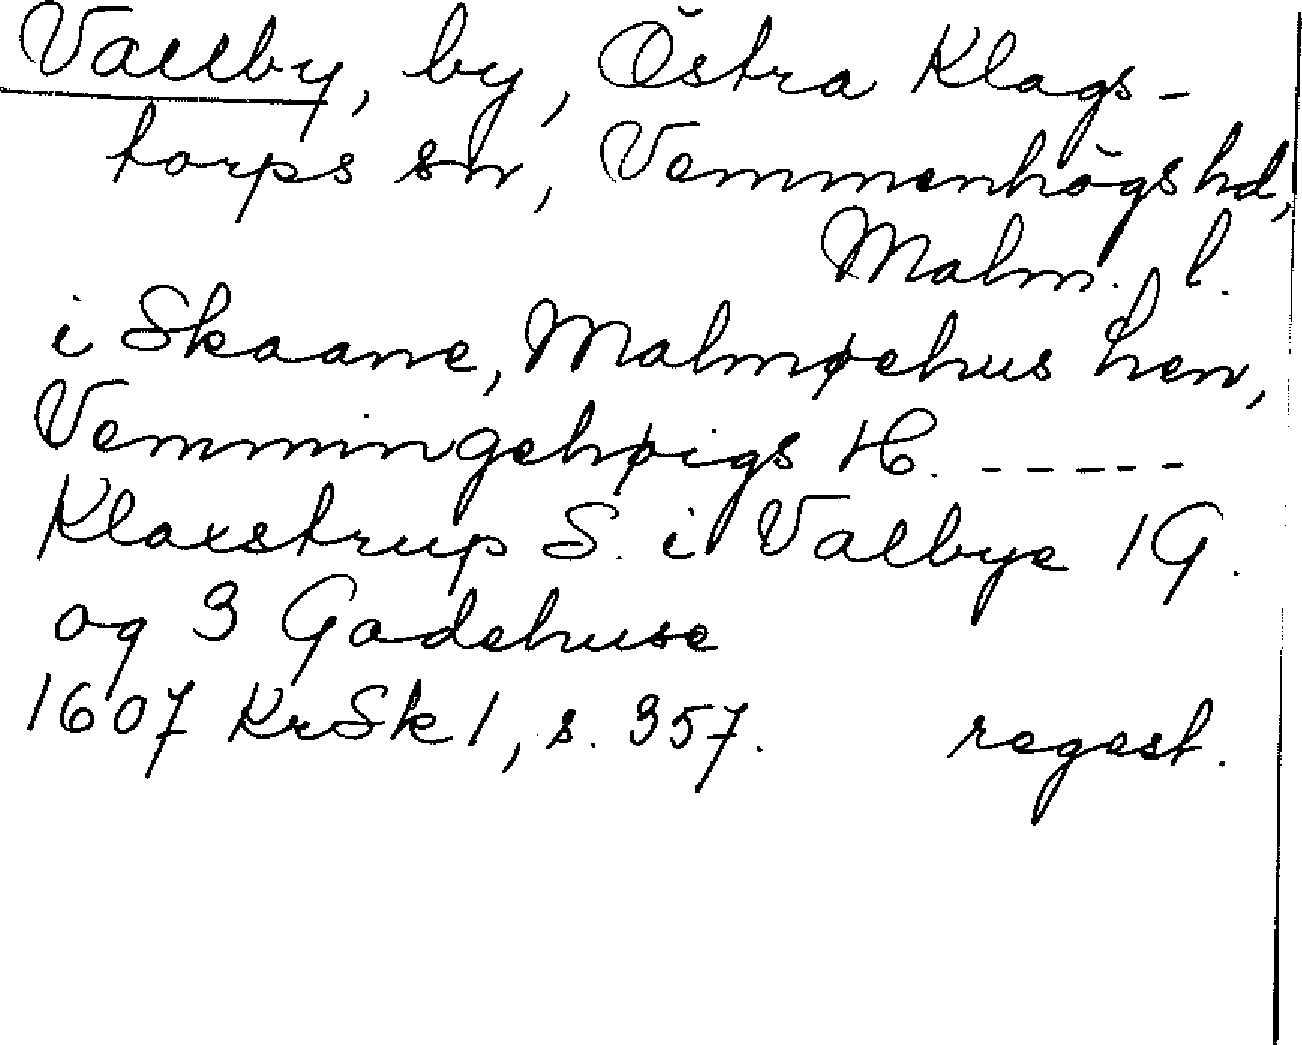 Vallby, by, Östra Klags-
torps sn, Vemmenhögs hd,
Malm. l.
i Skaane, Malmøehus Len,
Vemmingehøigs H. -----
Klaxstrup S. i Valbye 1 G.
og 3 Gadehuse
1607 KrSk 1, s. 357. regest.